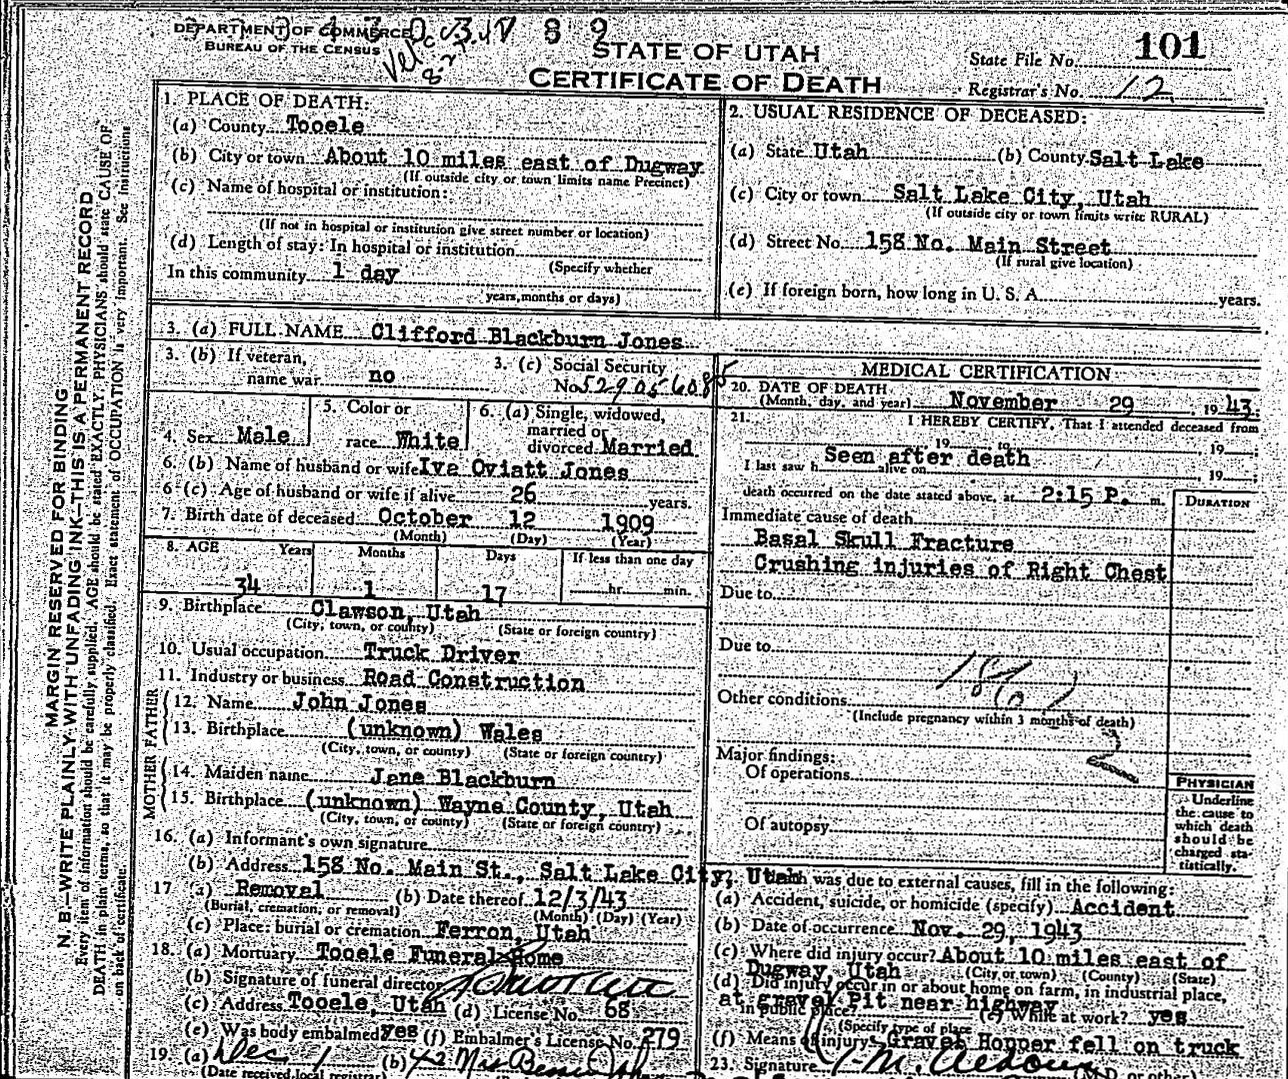 DEPARTMENT OF COMMERCE
BUREAU OF THE CENSUS
8 9
STATE OF UTAH
CERTIFICATE OF DEATH
State File No. 101
Registrar's No. 12
MARGIN RESERVED FOR BINDING
N. B.—WRITE PLAINLY WITH UNFADING INK—THIS IS A PERMANENT RECORD
Every item of information should be carefully supplied. AGE should be stated EXACTLY. PHYSICIANS should state CAUSE OF
DEATH in plain terms, so that it may be properly classified. Exact statement of OCCUPATION is very important. See Instructions
on back of certificate.
1. PLACE OF DEATH:
(a) County Tooele
(b) City or town About 10 miles east of Dugway
(If outside city or town limits name Precinct)
(c) Name of hospital or institution:
(If not in hospital or institution give street number or location)
(d) Length of stay: In hospital or institution
(Specify whether
In this community 1 day
years, months or days)
2. USUAL RESIDENCE OF DECEASED:
(a) State Utah (b) County Salt Lake
(c) City or town Salt Lake City, Utah
(If outside city or town limits write RURAL)
(d) Street No. 158 No. Main Street
(If rural give location)
(e) If foreign born, how long in U. S. A. years.
3. (a) FULL NAME Clifford Blackburn Jones
3. (b) If veteran,
name war no
3. (c) Social Security
No. 529056085
4. Sex Male
5. Color or
race White
6. (a) Single, widowed,
married or
divorced Married
6. (b) Name of husband or wife Iva Oviatt Jones
6 (c) Age of husband or wife if alive 26 years.
7. Birth date of deceased October 12 1909
(Month) (Day) (Year)
8. AGE Years Months Days If less than one day
34 1 17 hr. min.
9. Birthplace Clawson, Utah
(City, town, or county) (State or foreign country)
10. Usual occupation Truck Driver
11. Industry or business Road Construction
FATHER
12. Name John Jones
13. Birthplace (unknown) Wales
(City, town, or county) (State or foreign country)
MOTHER
14. Maiden name Jane Blackburn
15. Birthplace (unknown) Wayne County, Utah
(City, town, or county) (State or foreign country)
16. (a) Informant's own signature
(b) Address 158 No. Main St., Salt Lake City, Utah
17 (a) Removal (b) Date thereof 12/3/43
(Burial, cremation, or removal) (Month) (Day) (Year)
(c) Place: burial or cremation Ferron, Utah
18. (a) Mortuary Tooele Funeral Home
(b) Signature of funeral director
(c) Address Tooele, Utah (d) License No. 68
(e) Was body embalmed? yes (f) Embalmer's License No. 279
19. (a) Dec 1 (b) 42 Mrs
(Date received local registrar)
MEDICAL CERTIFICATION
20. DATE OF DEATH
(Month, day, and year) November 29, 1943
21. I HEREBY CERTIFY, That I attended deceased from
19 to 19
Seen after death
I last saw h alive on 19
death occurred on the date stated above, at 2:15 P. m.
DURATION
Immediate cause of death
Basal Skull Fracture
Crushing injuries of Right Chest
Due to
Due to
Other conditions
(Include pregnancy within 3 months of death)
Major findings:
Of operations
Of autopsy
PHYSICIAN
Underline
the cause to
which death
should be
charged sta-
tistically.
22. If death was due to external causes, fill in the following:
(a) Accident, suicide, or homicide (specify) Accident
(b) Date of occurrence Nov. 29, 1943
(c) Where did injury occur? About 10 miles east of
Dugway, Utah (City or town) (County) (State)
(d) Did injury occur in or about home on farm, in industrial place,
at gravel Pit near highway
in public place? (e) While at work? yes
(Specify type of place
(f) Means of injury Gravel Hopper fell on truck
23. Signature M.D. or other)